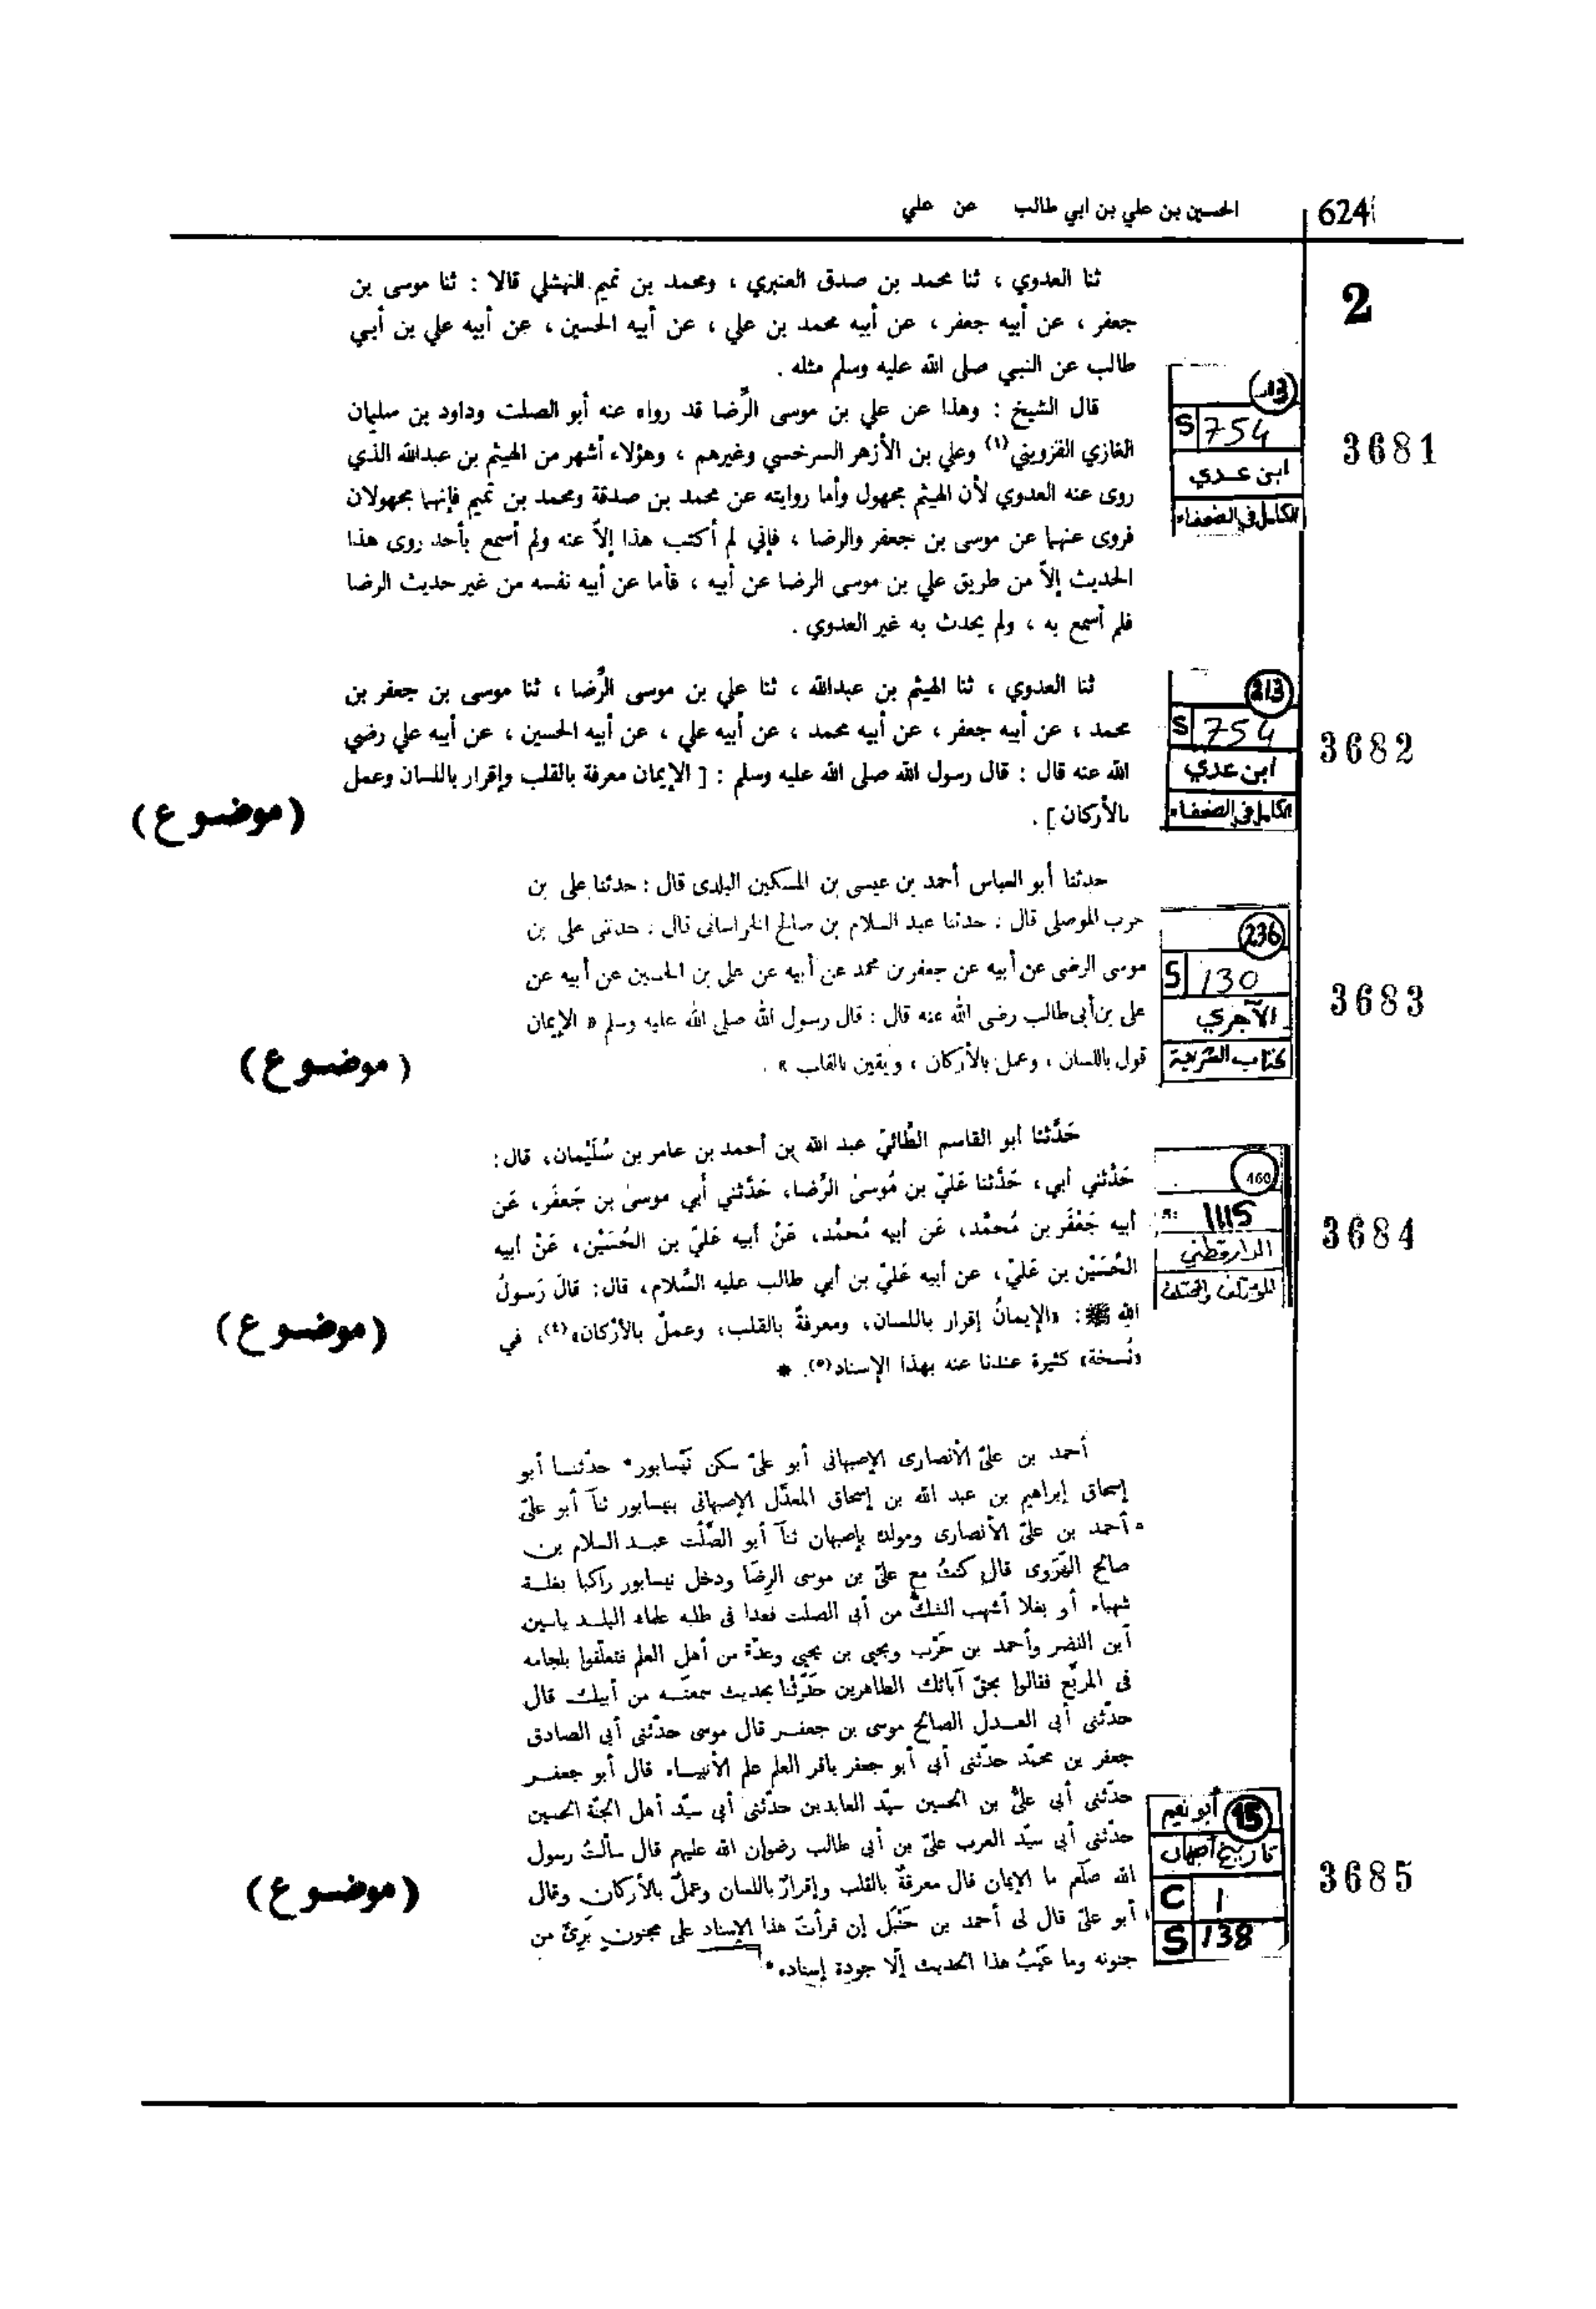 624
الحسين بن علي بن ابي طالب عن علي
2
ثنا العدوي ، ثنا محمد بن صدق العنبري ، ومحمد بن تميم النهشلي قالا : ثنا موسى بن
جعفر ، عن أبيه جعفر ، عن أبيه محمد بن علي ، عن أبيه الحسين ، عن أبيه علي بن أبي
طالب عن النبي صلى الله عليه وسلم مثله .
3681
S 754
ابن عدي
الكامل في الضعفاء
قال الشيخ : وهذا عن علي بن موسى الرِّضا قد رواه عنه أبو الصلت وداود بن سليمان
الغازي القزويني(١) وعلي بن الأزهر السرخسي وغيرهم ، وهؤلاء أشهر من الهيثم بن عبدالله الذي
روى عنه العدوي لأن الهيثم مجهول وأما روايته عن محمد بن صدقة ومحمد بن تميم فإنهما مجهولان
فروى عنهما عن موسى بن جعفر والرضا ، فإني لم أكتب هذا إلاّ عنه ولم أسمع بأحد روى هذا
الحديث إلاّ من طريق علي بن موسى الرضا عن أبيه ، فأما عن أبيه نفسه من غير حديث الرضا
فلم أسمع به ، ولم يحدث به غير العدوي .
3682
213
S 754
ابن عدي
الكامل في الضعفاء
ثنا العدوي ، ثنا الهيثم بن عبدالله ، ثنا علي بن موسى الرُّضا ، ثنا موسى بن جعفر بن
محمد ، عن أبيه جعفر ، عن أبيه محمد ، عن أبيه علي ، عن أبيه الحسين ، عن أبيه علي رضي
الله عنه قال : قال رسول الله صلى الله عليه وسلم : [ الإيمان معرفة بالقلب وإقرار باللسان وعمل
بالأركان ] .
(موضوع)
3683
236
S 130
الآجري
كتاب الشريعة
حدثنا أبو العباس أحمد بن عيسى بن المسكين البلدى قال : حدثنا على بن
حرب الموصلى قال : حدثنا عبد السلام بن صالح الخراسانى قال : حدثنى على بن
موسى الرضى عن أبيه عن جعفر بن محمد عن أبيه عن على بن الحسين عن أبيه عن
على بن أبى طالب رضى الله عنه قال : قال رسول الله صلى الله عليه وسلم « الإيمان
قول باللسان ، وعمل بالأركان ، ويقين بالقلب » .
(موضوع)
3684
460
1115
الدارقطني
المؤتلف والمختلف
حَدَّثنا أبو القاسم الطَّائيّ عبد الله بن أحمد بن عامر بن سُلَيْمان، قال:
حَدَّثني أبي، حَدَّثنا عَليّ بن مُوسىٰ الرِّضا، حَدَّثني أبي موسىٰ بن جَعفَر، عَن
أبيه جَعْفَر بن مُحمَّد، عَن أبيه مُحمَّد، عَنْ أبيه عَليّ بن الحُسَيْن، عَنْ أبيه
الحُسَيْن بن عَليّ، عن أبيه عَليّ بن أبي طالب عليه السَّلام، قال: قالَ رَسولُ
الله ﷺ: «الإيمانُ إقرار باللسان، ومعرفةٌ بالقلب، وعملٌ بالأرْكان»(٤)، في
«نُسخة» كثيرة عندنا عنه بهذا الإسناد(٥). *
(موضوع)
أحمد بن علىّ الأنصارى الإصبهانى أبو علىّ سكن نَيْسابور* حدّثنا أبو
إسحاق إبراهيم بن عبد الله بن إسحاق المعدَّل الإصبهانى بنيسابور ثنآ أبو علىّ
أحمد بن علىّ الأنصارى ومولده بإصبهان ثنآ أبو الصَّلْت عبد السلام بن
صالح الهَرَوى قال كنتُ مع علىّ بن موسى الرِضَا ودخل نيسابور راكبا بغلة
شهباء أو بغلا أشهب الشكّ من أبى الصلت فغدا فى طلبه علماء البلد ياسين
آبن النضر وأحمد بن حَرْب ويحيى بن يحيى وعدّة من أهل العلم فتعلّقوا بلجامه
فى المربّع فقالوا بحقّ آبائك الطاهرين حَدِّثْنا بحديث سمعتَه من أبيك قال
حدّثنى أبى العدل الصالح موسى بن جعفر قال موسى حدّثنى أبى الصادق
جعفر بن محمّد حدّثنى أبى أبو جعفر باقر العلم علم الأنبياء قال أبو جعفر
حدّثنى أبى علىّ بن الحسين سيّد العابدين حدّثنى أبى سيّد أهل الجنّة الحسين
حدّثنى أبى سيّد العرب علىّ بن أبى طالب رضوان الله عليهم قال سألتُ رسول
الله صلّعم ما الإيمان قال معرفةٌ بالقلب وإقرارٌ باللسان وعملٌ بالأركان وقال
أبو علىّ قال لى أحمد بن حَنْبَل إن قرأتَ هذا الإسناد على مجنون بَرِئَ من
جنونه وما عَيْبُ هذا الحديث إلّا جودة إسناده*
(موضوع)
3685
15 أبو نعيم
تاريخ أصبهان
C 1
S 138